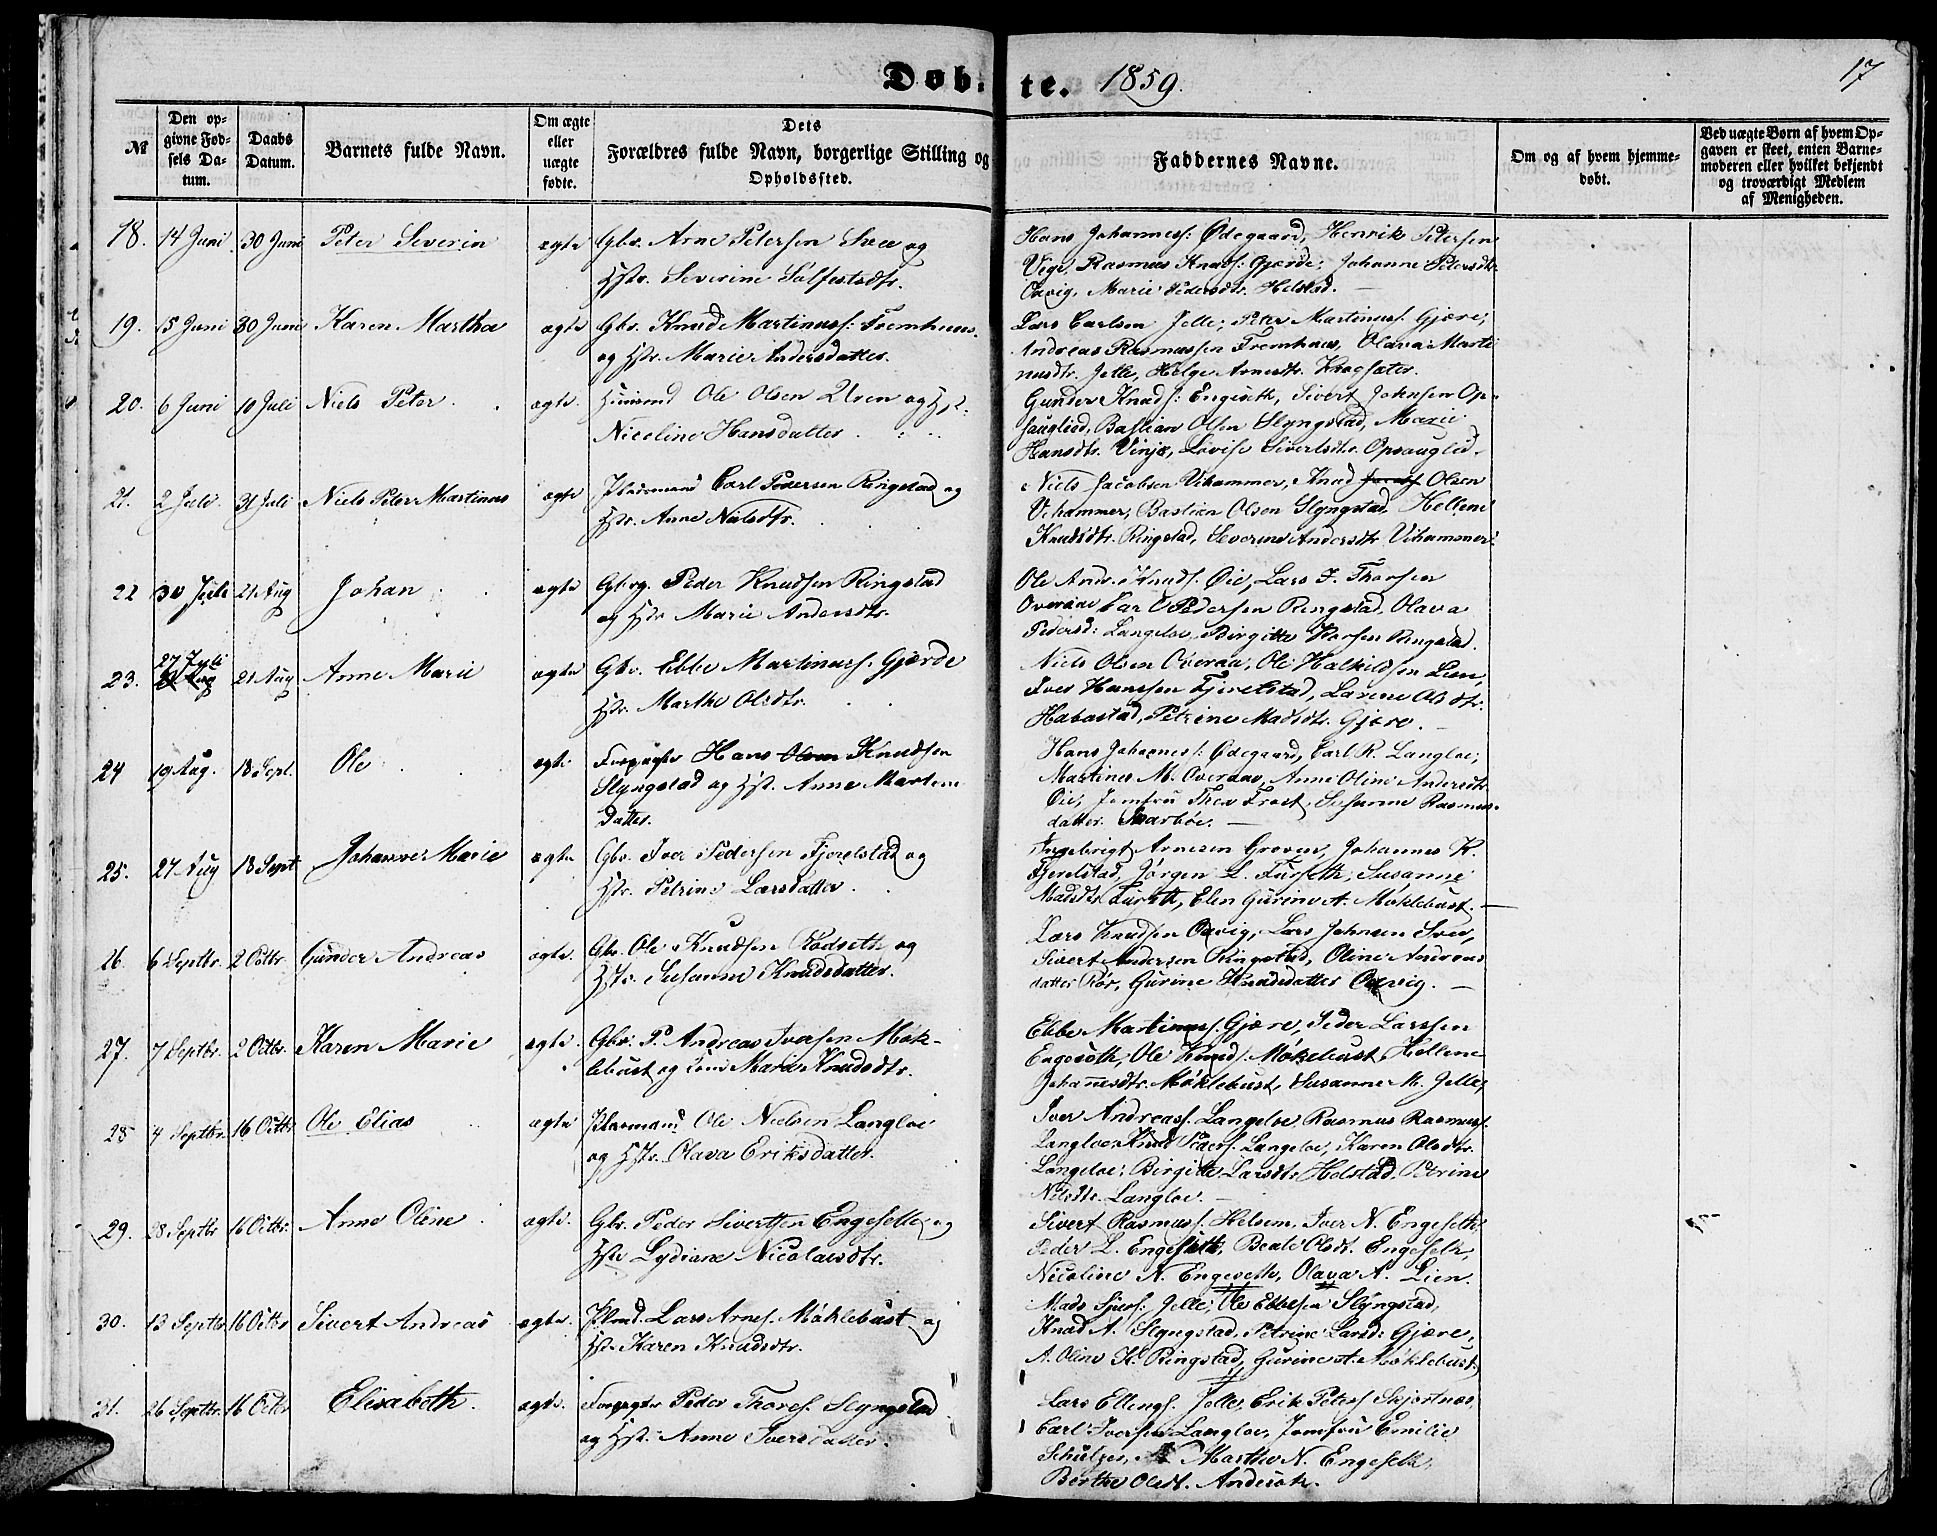 Døb- te. 1859. 17
№
Den opgivne Fødsels Datum.
Daabs Datum.
Barnets fulde Navn.
Om ægte eller uægte fødte.
Dets
Forældres fulde Navn, borgerlige Stilling og
Opholdssted.
Faddernes Navne.
Om og af hvem hjemmedøbt.
Ved uægte Børn af hvem Opgaven er skeet, enten Barnemoderen eller hvilket bekjendt og troværdigt Medlem af Menigheden.
18. 14 Juni 30 Juni Peter Severin ægte Gbr. Arne Petersen Svee og
Hstr. Severine Sølfestsdtr.
Hans Johanness: Ødegaard, Henrik Petersen
Vige, Rasmus Knuds: Gjærde, Johanne Petersdtr.
Oavig, Marie Pedersdtr. Helstad.
19. 15 Juni 30 Juni Karen Martha ægte Gbr. Knud Martinuss: Fremhuus
og Hstr. Marie Andersdatter.
Lars Carlsen Jelle, Peter Martinuss. Gjære,
Andreas Rasmussen Fremhuus, Olava Marti-
nusdtr. Jelle, Helge Arnesdtr. Krogsæter.
20. 6 Juni 10 Juli Niels Peter ægte. Huusmd Ole Olsen Uren og Hst:
Nicoline Hansdatter.
Gunder Knuds: Engeseth, Sivert Johnsen Op-
sauglied, Bastian Olsen Slyngstad, Marie
Hansdtr. Vinje, Lovise Sivertsdtr. Opsauglid.
21. 2 Juli 31 Juli Niels Peter Martinus ægte Pladsmand Carl Pedersen Ringstad og
Hstr. Anne Nielsdtr.
Niels Jacobsen Vihammer, Knud Olsen
Vihammer, Bastian Olsen Slyngstad, Hellene
Knudsdtr. Ringstad, Severine Andersdtr Vihammer.
22 30 Juli 21 Aug Johan ægte Gbrg. Peder Knudsen Ringstad
og Hstr Marie Andersdtr.
Ole And. Knuds. Øie, Lars J. Thorsen
Overaae Carl Pedersen Ringstad, Olava
Pedersd: Langeloe, Birgitte Thorsen Ringstad.
23. 27 Juli 21 Aug Anne Marie ægte Gbr. Ebbe Martinuss. Gjærde
Hstr. Marthe Olsdtr.
Niels Olsen Overaa, Ole Halkildsen Lien,
Iver Hanssen Fjørelstad, Lavine Olsdtr.
Habostad, Petrine Madsdtr. Gjære.
24 19 Aug. 18 Sept. Ole ægte Forpagter Hans Olsen Knudsen
Slyngstad og Hst. Anne Martine
Datter.
Hans Johannes: Ødegaard, Carl R. Langloe,
Martinus M. Overaae, Anne Oline Andersdtr
Øie, Jomfru Thea Frost, Susanne Rasmus-
datter. Skarbøe.
25. 27 Aug 18 Sept Johanne Marie ægte Gbr. Iver Pedersen Fjørelstad og
Hstr. Petrine Larsdatter.
Ingebrigt Arnesen Groven, Johannes K.
Fjerelstad, Jørgen L. Furseth, Susanne
Madsdtr Furseth, Elen Gurine A. Møklebust.
26. 6 Septbr. 2 Octbr. Gunder Andreas ægte. Gbr. Ole Knudsen Rødseth og
Hstr. Susanne Knudsdatter.
Lars Knudsen Oavig, Lars Johnsen Svee,
Sivert Andersen Ringstad, Oline Andreas
datter Rør, Gurine Knudsdatter Oavig.
27. 7 Septbr. 2 Octbr. Karen Marie ægte. Gbr. P. Andreas Iversen Møk-
lebust og Kone Marie Knudsdtr.
Ebbe Martinuss. Gjære, Peder Larssen
Engeseth, Ole Knuds. Møklebust, Hellene
Johannesdtr. Møklebust, Susanne M. Jelle,
28 4 Septbr. 16 Octbr Ole Elias ægte Pladsmand Ole Nielsen Langloe
og Hstr. Olava Eriksdatter.
Iver Andreass. Langeloe Rasmus Rasmuss.
Langloe Knud Peders. Langeloe, Karen Olsdtr.
Langeloe, Birgitte Larsdtr Helstad, Petrine
Nilsdtr. Langloe.
29. 28 Septbr 16 Octbr. Anne Oline ægte. Gbr. Peder Sivertsen Engeseth og
Hstr Lydiane Nicolaisdtr.
Sivert Rasmuss. Helsem, Iver N. Engeseth,
Peder L. Engeseth, Beate Olsdt. Engeseth,
Nicoline N. Engeseth, Olava A. Lien.
30. 13 Septbr 16 Octbr Sivert Andreas ægte. Plmd. Lars Arnes. Møklebust og
Hst. Karen Knudsdtr.
Mads Sjurs: Jelle, Ole Ebbesen Slyngstad,
Knud A. Slyngstad, Petrine Larsd: Gjære,
A. Oline K. Ringstad, Gurine A. Møklebust,
31. 26 Septbr. 16 Octbr Elisabeth. ægte. Forpagter Peder Thores. Slyngstad
og Hst. Anne Iversdatter.
Lars Ellings. Jelle, Erik Peters Skjortnes,
Carl Iversen Langloe, Jomfru Emilie
Schultzen, Marthe N. Engeseth,
Berthe Olsdt. Anderseth.